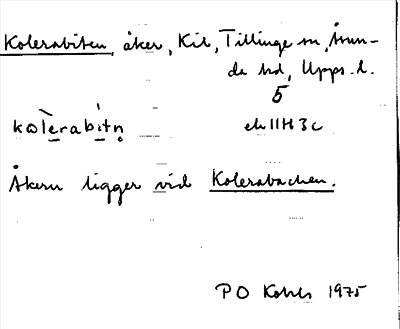 Kolerabiten, åker, Kil, Tillinge sn, Åsun-
da hd, Upps. l.
5
kωlèrabítn̥
ek 11H 3c
Åkern ligger vid Kolerabacken.
P O Kohls 1975